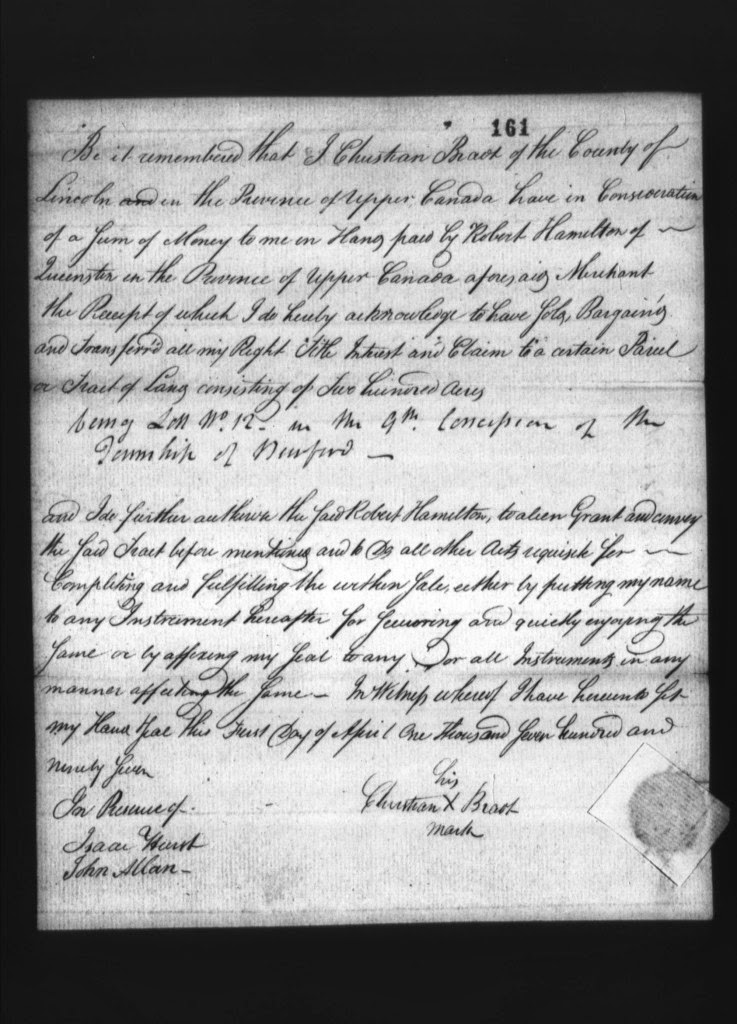 161
Be it remembered that I Christian Bradt of the County of
Lincoln and in the Province of Upper Canada have in Consideration
of a Sum of Money to me in Hand paid by Robert Hamilton of
Queenston in the Province of Upper Canada aforesaid Merchant
the Receipt of which I do hereby acknowledge to have Sold, Bargain'd
and Transferr'd all my Right Title Interest and Claim to a certain Parcel
or Tract of Land consisting of Two hundred Acres
being Lott No. 12 - in the 9th. Concession of the
Township of Burford —
and I do further authorize the said Robert Hamilton, to alien Grant and convey
the said Tract before mentioned and to Do all other Acts requisite for
Completing and fulfilling the within Sale, either by putting my name
to any Instrument hereafter for securing and quickly enjoying the
same or by affixing my Seal to any or all Instruments in any
manner affecting the same — In Witness whereof I have hereunto set
my Hand & Seal this First Day of April One Thousand Seven hundred and
ninety Seven
In Presence of.
his
Christian X Bradt
mark
Isaac Hurst
John Allan -